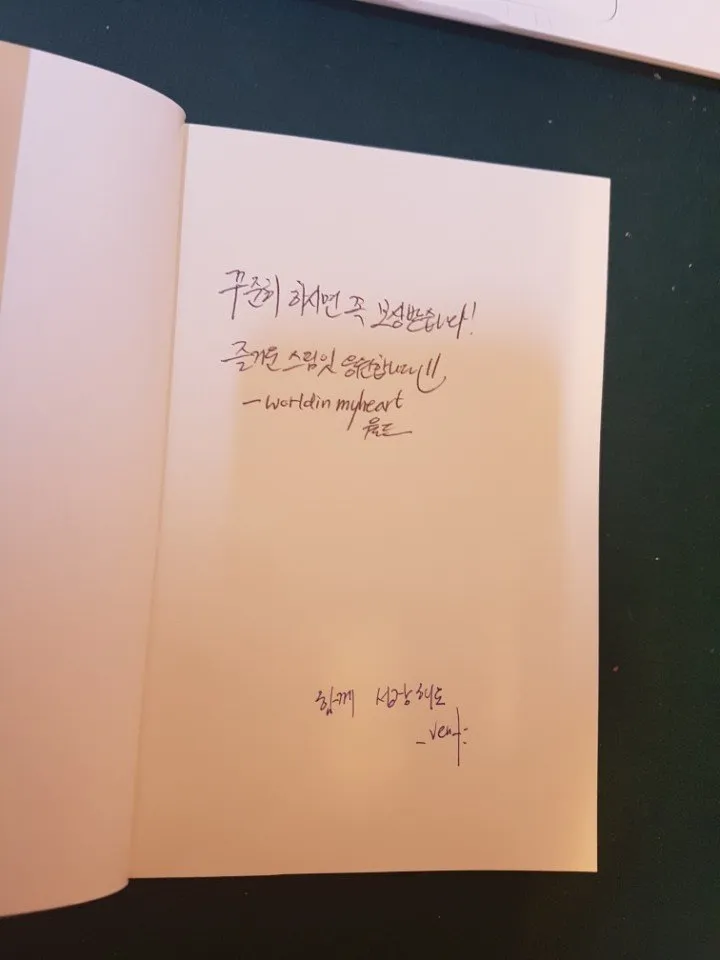 꾸준히 하시면 꼭 보상받습니다!
즐거운 스팀잇 응원합니다!!
- worldin myheart
함께 성장해도
- ven